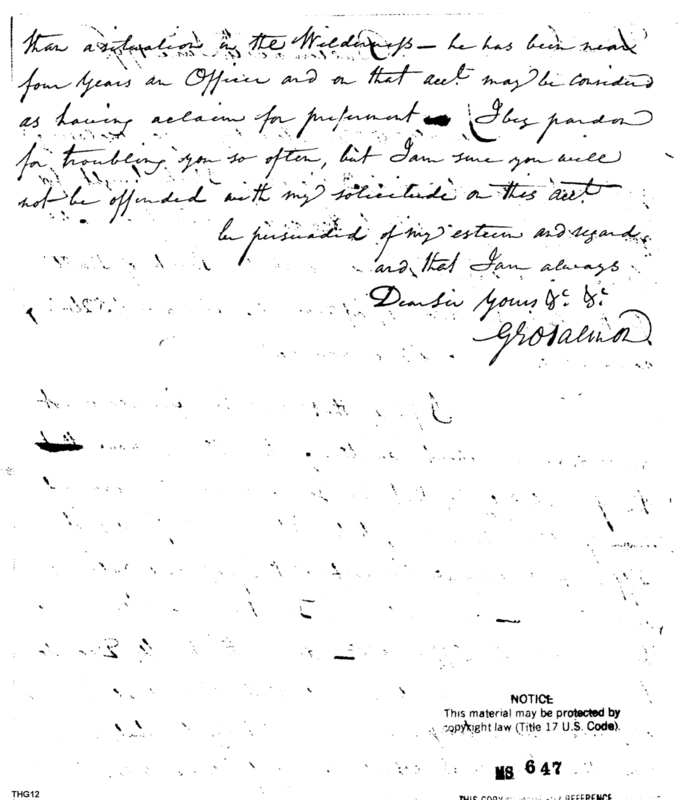 than a situation in the Wilderness — he has been near
four Years an Officer and on that acct. may be considerd
as having a claim for preferment — I beg pardon
for troubling you so often, but I am sure you will
not be offended with my solicitude on this acct.
be persuaded of my esteem and regard
and that I am always
Dear Sir Yours &c. &c.
NOTICE
This material may be protected by
copyright law (Title 17 U.S. Code).
MS 647
THIS COPY REFERENCE
THG12